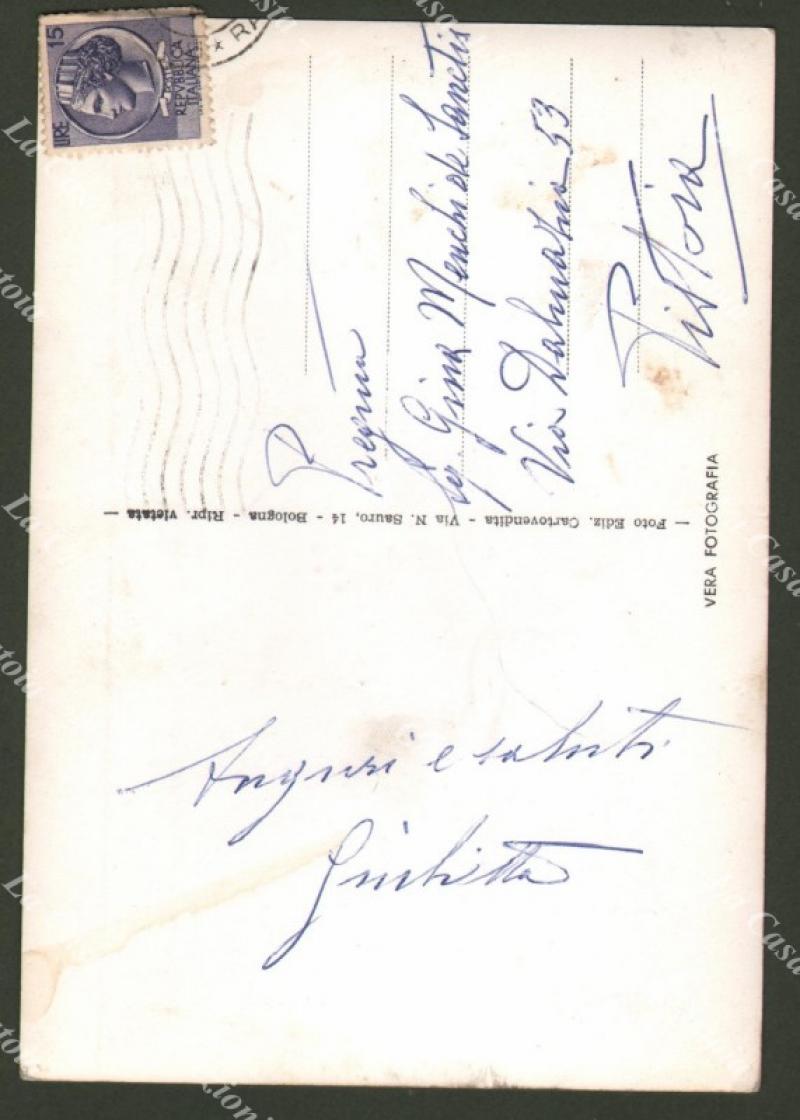 15
LIRE
REPVBBLICA
ITALIANA
★ RA
Preg.ma
Sig. Gina Menchi de Sanctis
Via Dalmazia 53
Pistoia
— Foto Ediz. Cartovendita - Via N. Sauro, 14 - Bologna - Ripr. vietata —
VERA FOTOGRAFIA
Auguri e saluti
Giulietta